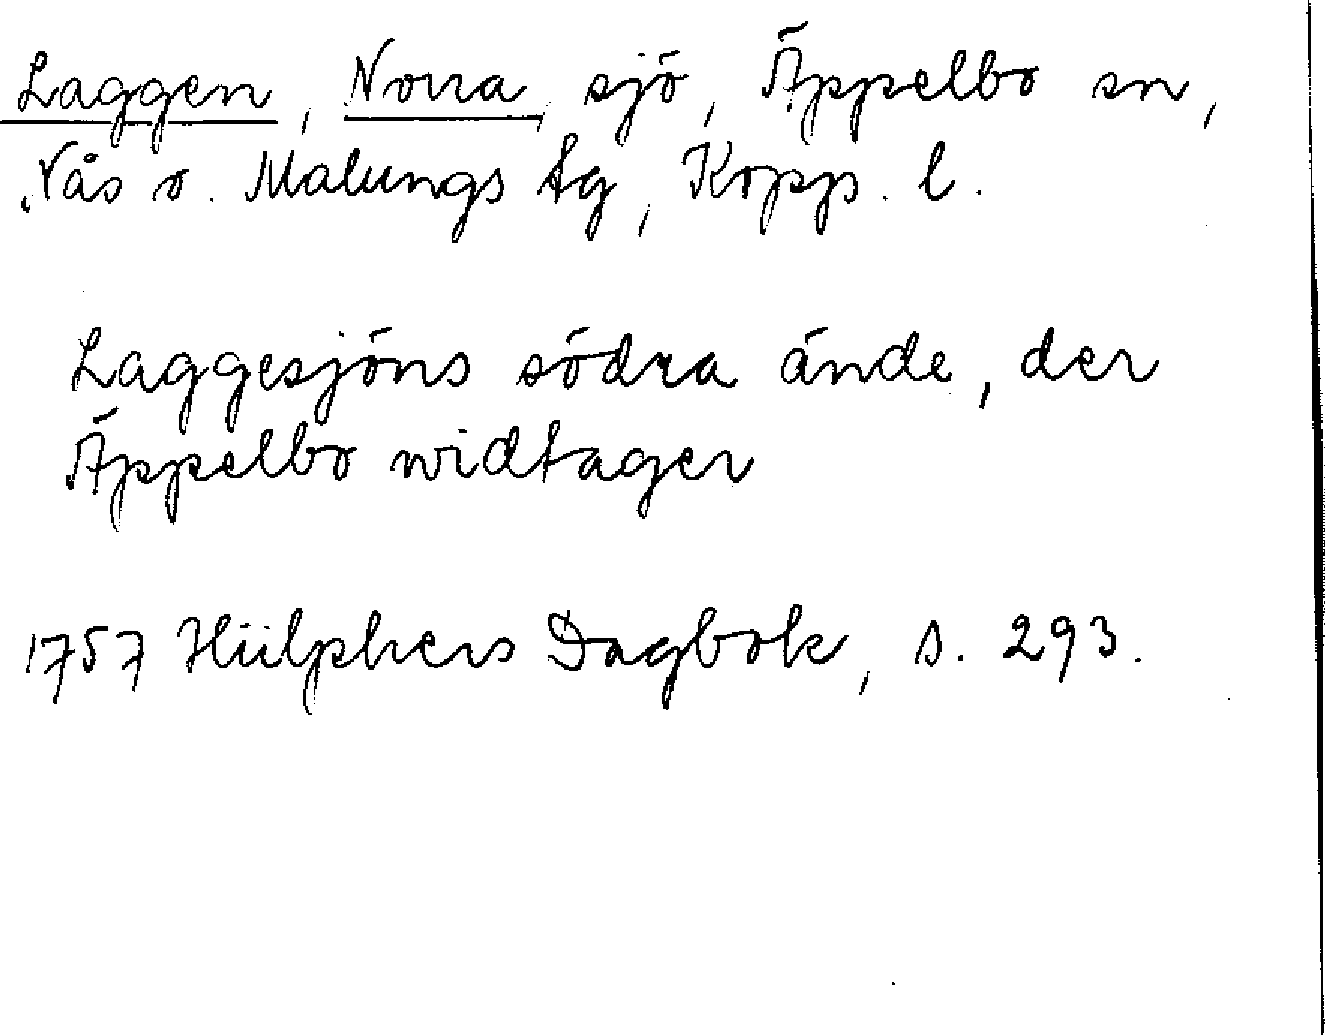 Laggen, Norra sjö, Äppelbo sn,
Nås o. Malungs tg, Kopp. l.
Laggesjöns södra ände, der
Äppelbo widtager
1757 Hülphers Dagbok, s. 293.